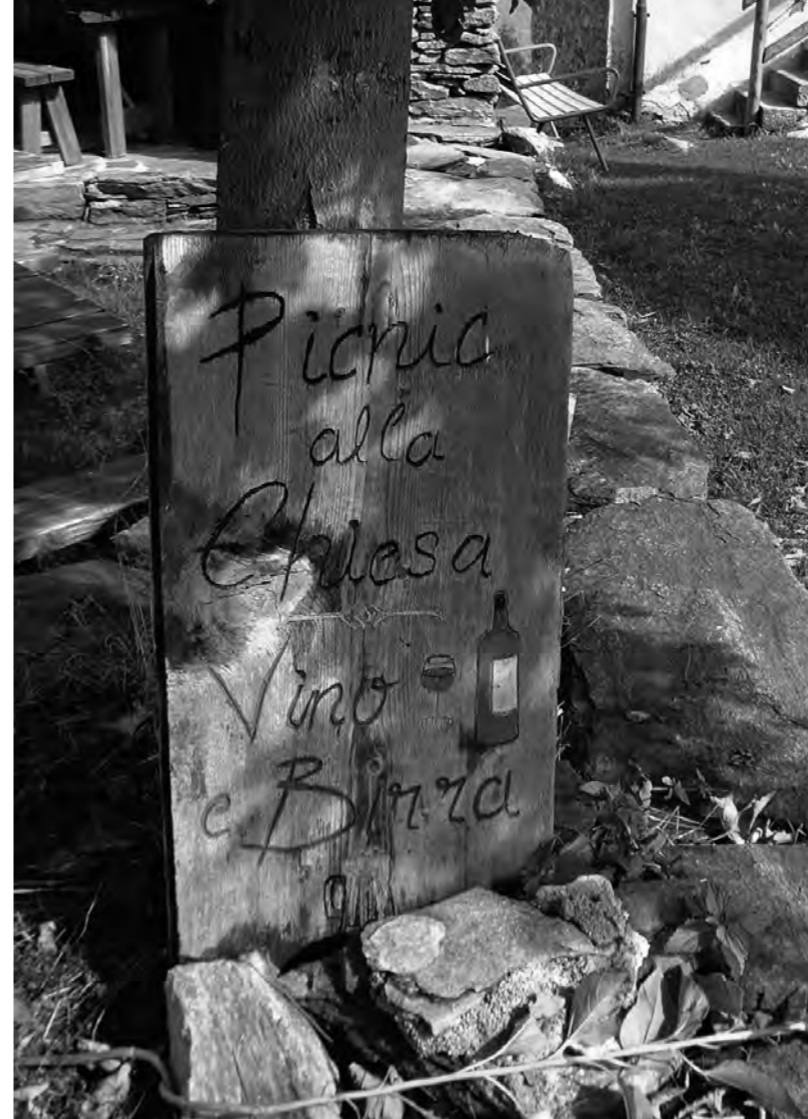 Picnic
alla
Chiesa
Vino
e Birra